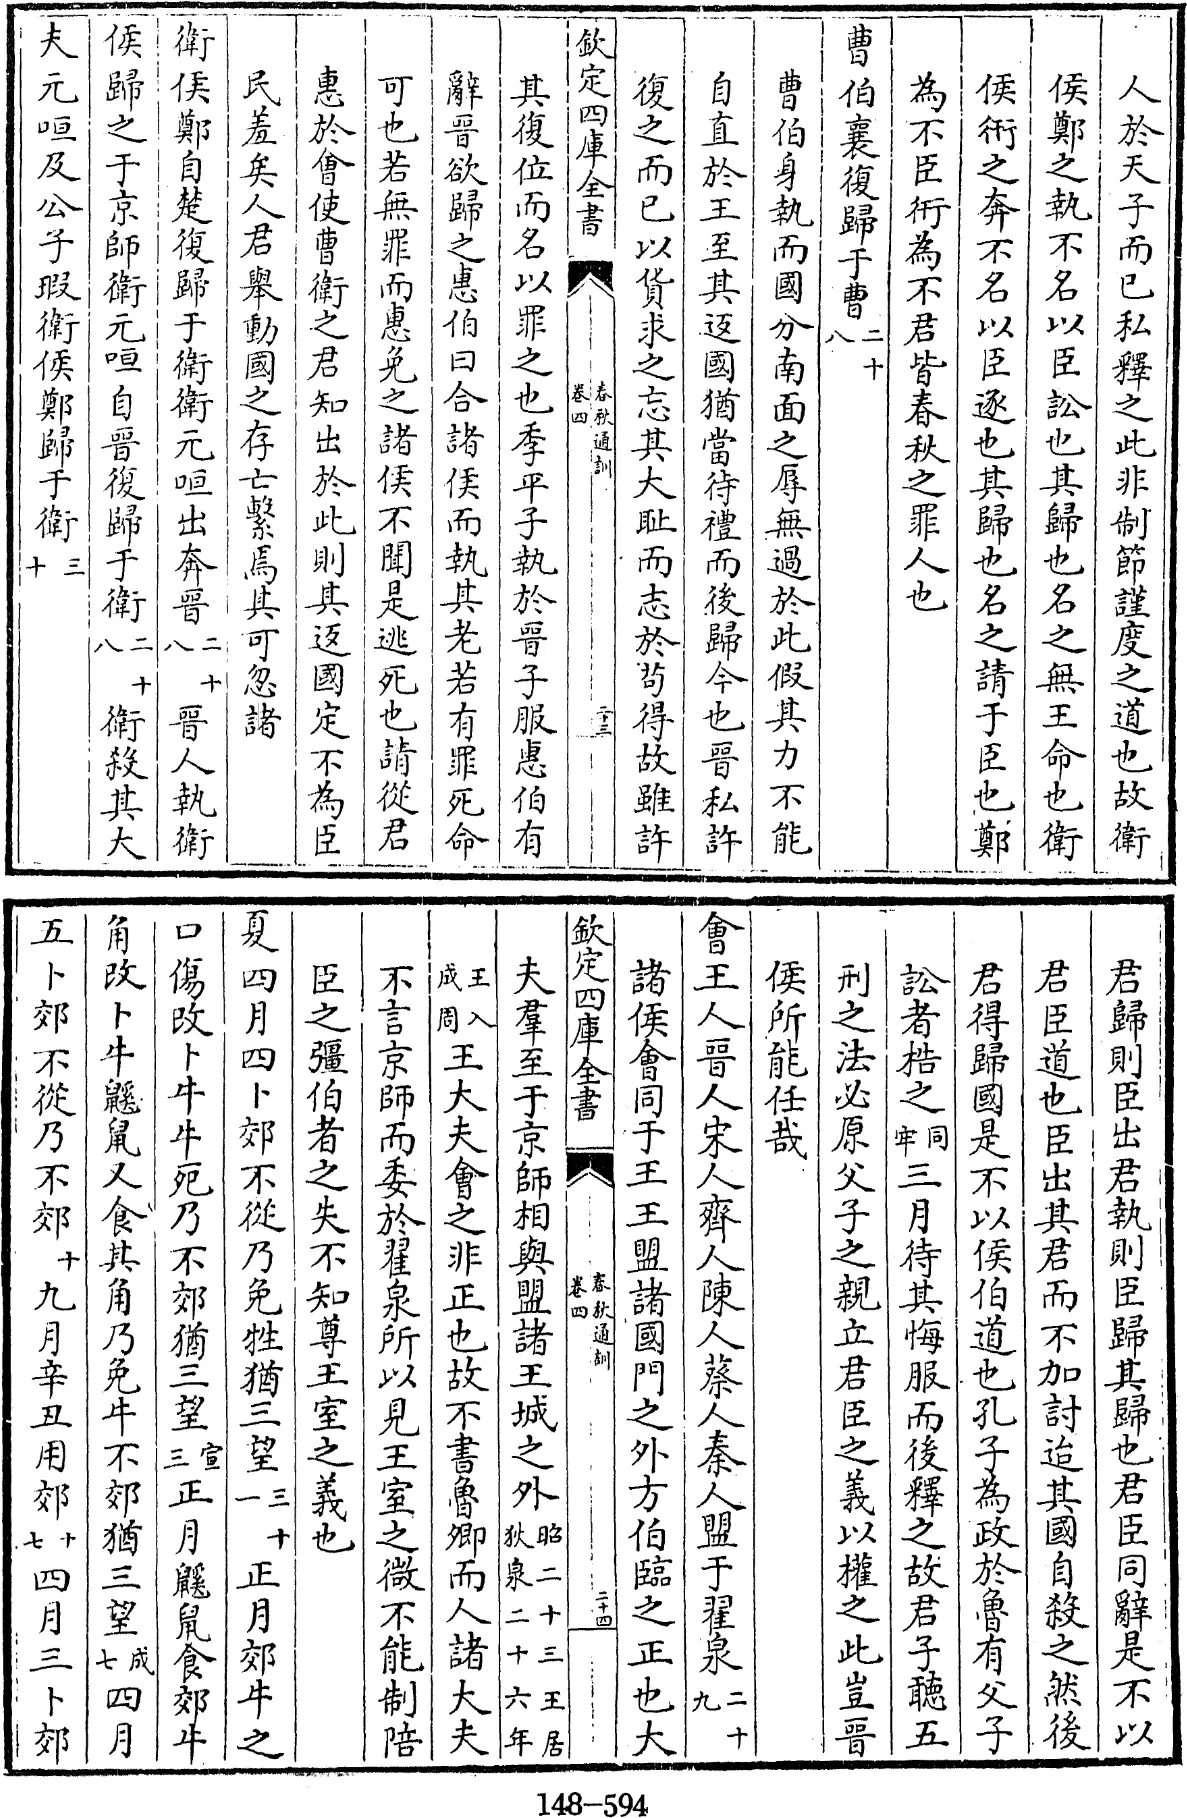 人於天子而已私釋之此非制節謹度之道也故衛
侯鄭之執不名以臣訟也其歸也名之無王命也衛
侯衎之奔不名以臣逐也其歸也名之請于臣也鄭
為不臣衎為不君皆春秋之罪人也
曹伯襄復歸于曹二十八
曹伯身執而國分南面之辱無過於此假其力不能
自直於王至其返國猶當待禮而後歸今也晉私許
復之而已以貨求之忘其大恥而志於茍得故雖許
欽定四庫全書
春秋通訓
卷四
二十三
其復位而名以罪之也季平子執於晉子服惠伯有
辭晉欲歸之惠伯曰合諸侯而執其老若有罪死命
可也若無罪而惠免之諸侯不聞是逃死也請從君
惠於會使曹衛之君知出於此則其返國定不為臣
民羞矣人君舉動國之存亡繫焉其可忽諸
衛侯鄭自楚復歸于衛衛元咺出奔晉二十八晉人執衛
侯歸之于京師衛元咺自晉復歸于衛二十八衛殺其大
夫元咺及公子瑕衛侯鄭歸于衛三十
君歸則臣出君執則臣歸其歸也君臣同辭是不以
君臣道也臣出其君而不加討迨其國自殺之然後
君得歸國是不以侯伯道也孔子為政於魯有父子
訟者梏之同牢三月待其悔服而後釋之故君子聽五
刑之法必原父子之親立君臣之義以權之此豈晉
侯所能任哉
會王人晉人宋人齊人陳人蔡人秦人盟于翟泉二十九
諸侯會同于王王盟諸國門之外方伯臨之正也大
欽定四庫全書
春秋通訓
卷四
二十四
夫羣至于京師相與盟諸王城之外昭二十三王居狄泉二十六年
王入成周王大夫會之非正也故不書魯卿而人諸大夫
不言京師而委於翟泉所以見王室之微不能制陪
臣之彊伯者之失不知尊王室之義也
夏四月四卜郊不從乃免牲猶三望三十一正月郊牛之
口傷改卜牛牛死乃不郊猶三望宣三正月鼷鼠食郊牛
角改卜牛鼷鼠又食其角乃免牛不郊猶三望成七四月
五卜郊不從乃不郊十九月辛丑用郊十七四月三卜郊
148-594